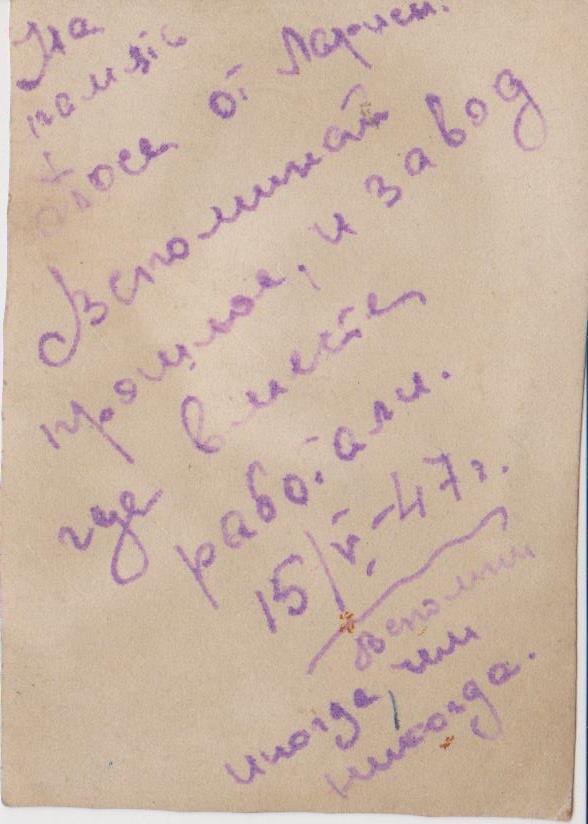 На
память
от Ларисы.
Вспоминай
прошлое, и завод
где вместе
работали.
15/V-47г.
Вспомни
иногда, чем
никогда.